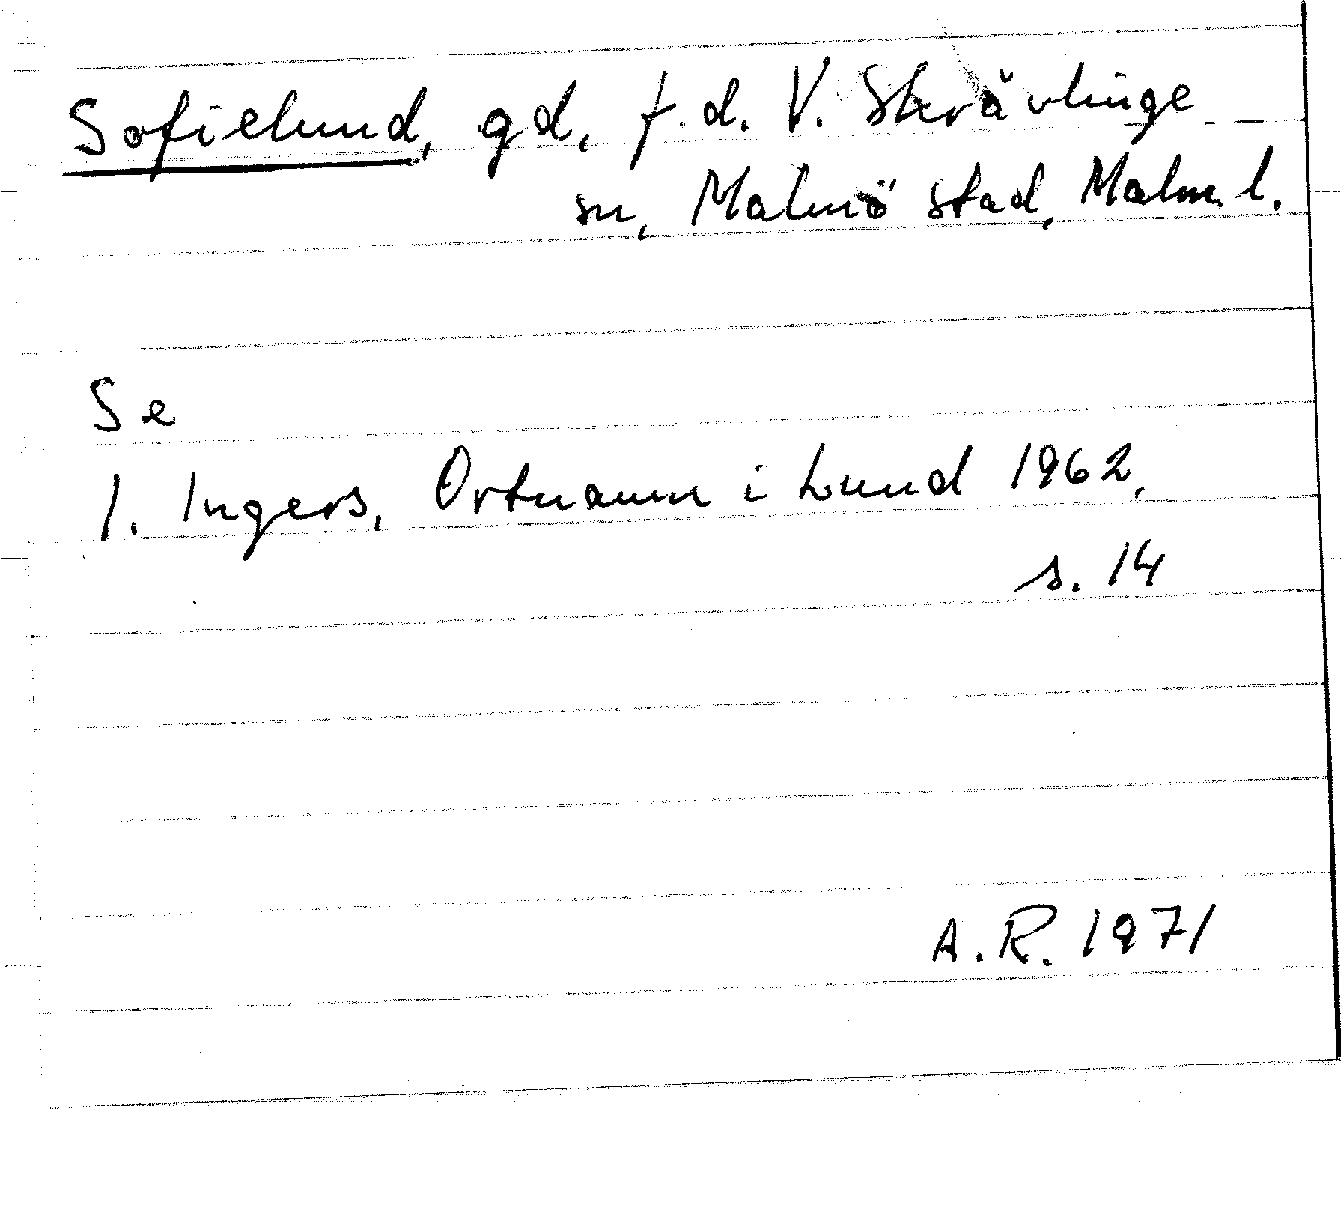 Sofielund, gd, f.d. V. Skrävlinge
sn, Malmö stad, Malm. l.
Se
I. Ingers, Ortnamn i Lund 1962,
s. 14
A.R. 1971